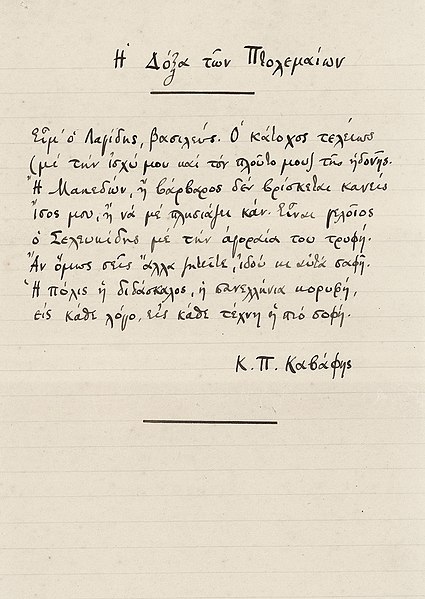 Ἡ Δόξα τῶν Πτολεμαίων
Εἶμ' ὁ Λαγίδης, βασιλεύς. Ὁ κάτοχος τελείως
(μὲ τὴν ἰσχύ μου καὶ τὸν πλοῦτο μου) τῆς ἡδονῆς.
Ἢ Μακεδών, ἢ βάρβαρος δὲν βρίσκεται κανεὶς
ἴσος μου, ἢ νὰ μὲ πλησιάζει κάν. Εἶναι γελοῖος
ὁ Σελευκίδης μὲ τὴν ἀγοραία του τρυφή.
Ἂν ὅμως σεῖς ἄλλα ζητεῖτε, ἰδοὺ κι αὐτὰ σαφῆ.
Ἡ πόλις ἡ διδάσκαλος, ἡ πανελλήνια κορυφή,
εἰς κάθε λόγο, εἰς κάθε τέχνη ἡ πιὸ σοφή.
Κ. Π. Καβάφης